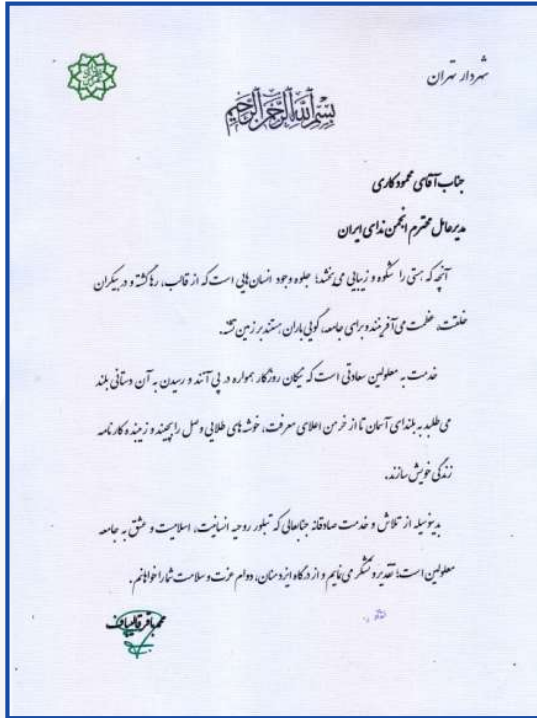 شهردار تهران
بسم الله الرحمن الرحیم
جناب آقای محمود کاری
مدیرعامل محترم انجمن ندای ایران
آنچه که هستی را شکوه و زیبایی می‌بخشد؛ جلوه وجود انسان‌هایی است که از قالب، رها گشته و در بیکران
خلقت، عظمت می‌آفرینند و برای جامعه، گویی باران هستند بر زمین تشنه.
خدمت به معلولین سعادتی است که نیکان روزگار همواره در پی آنند و رسیدن به آن دستانی بلند
می‌طلبد به بلندای آسمان تا از خرمن اعلای معرفت، خوشه‌های طلایی وصل را بچیند و زینده کارنامه
زندگی خویش سازند.
بدینوسیله از تلاش و خدمت صادقانه جنابعالی که تبلور روحیه انسانیت، اسلامیت و عشق به جامعه
معلولین است؛ تقدیر و تشکر می‌نمایم و از درگاه ایزد منان، دوام عزت و سلامت شما را خواهانم.
محمد باقر قالیباف